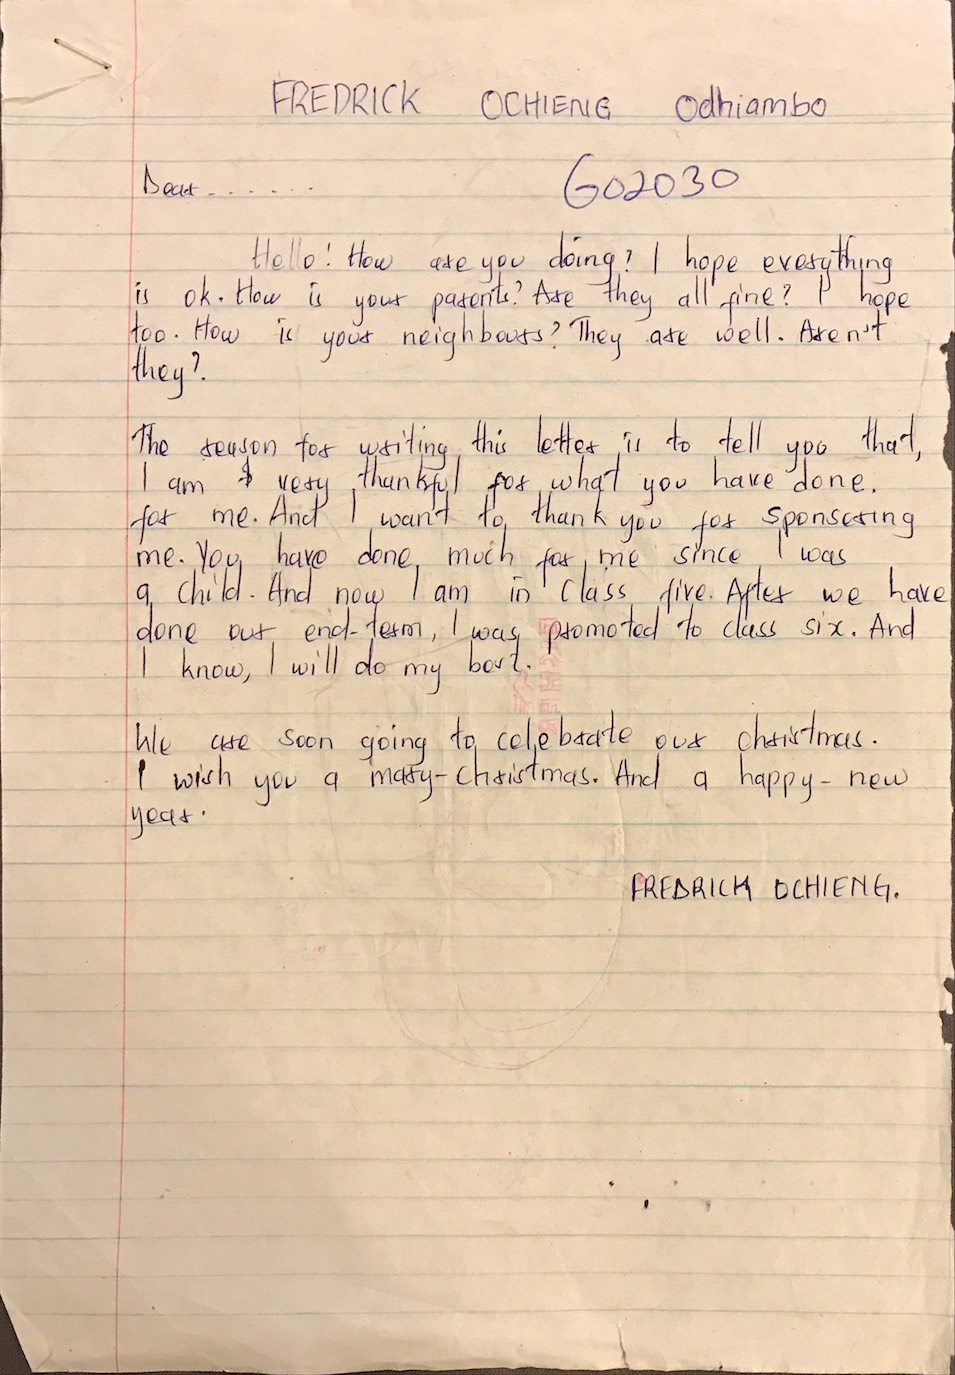 FREDRICK OCHIENG Odhiambo
Dear.......
G02030
Hello! How are you doing? I hope everything
is ok. How is your parents? Are they all fine? I hope
too. How is your neighbours? They are well. Aren't
they?
The reason for writing this letter is to tell you that,
I am very thankful for what you have done.
for me. And I want to thank you for sponsering
me. You have done much for me since I was
a child. And now I am in class five. After we have
done our end-term, I was promoted to class six. And
I know, I will do my best.
We are soon going to celebrate our christmas.
I wish you a mary-christmas. And a happy-new
year.
FREDRICK OCHIENG.